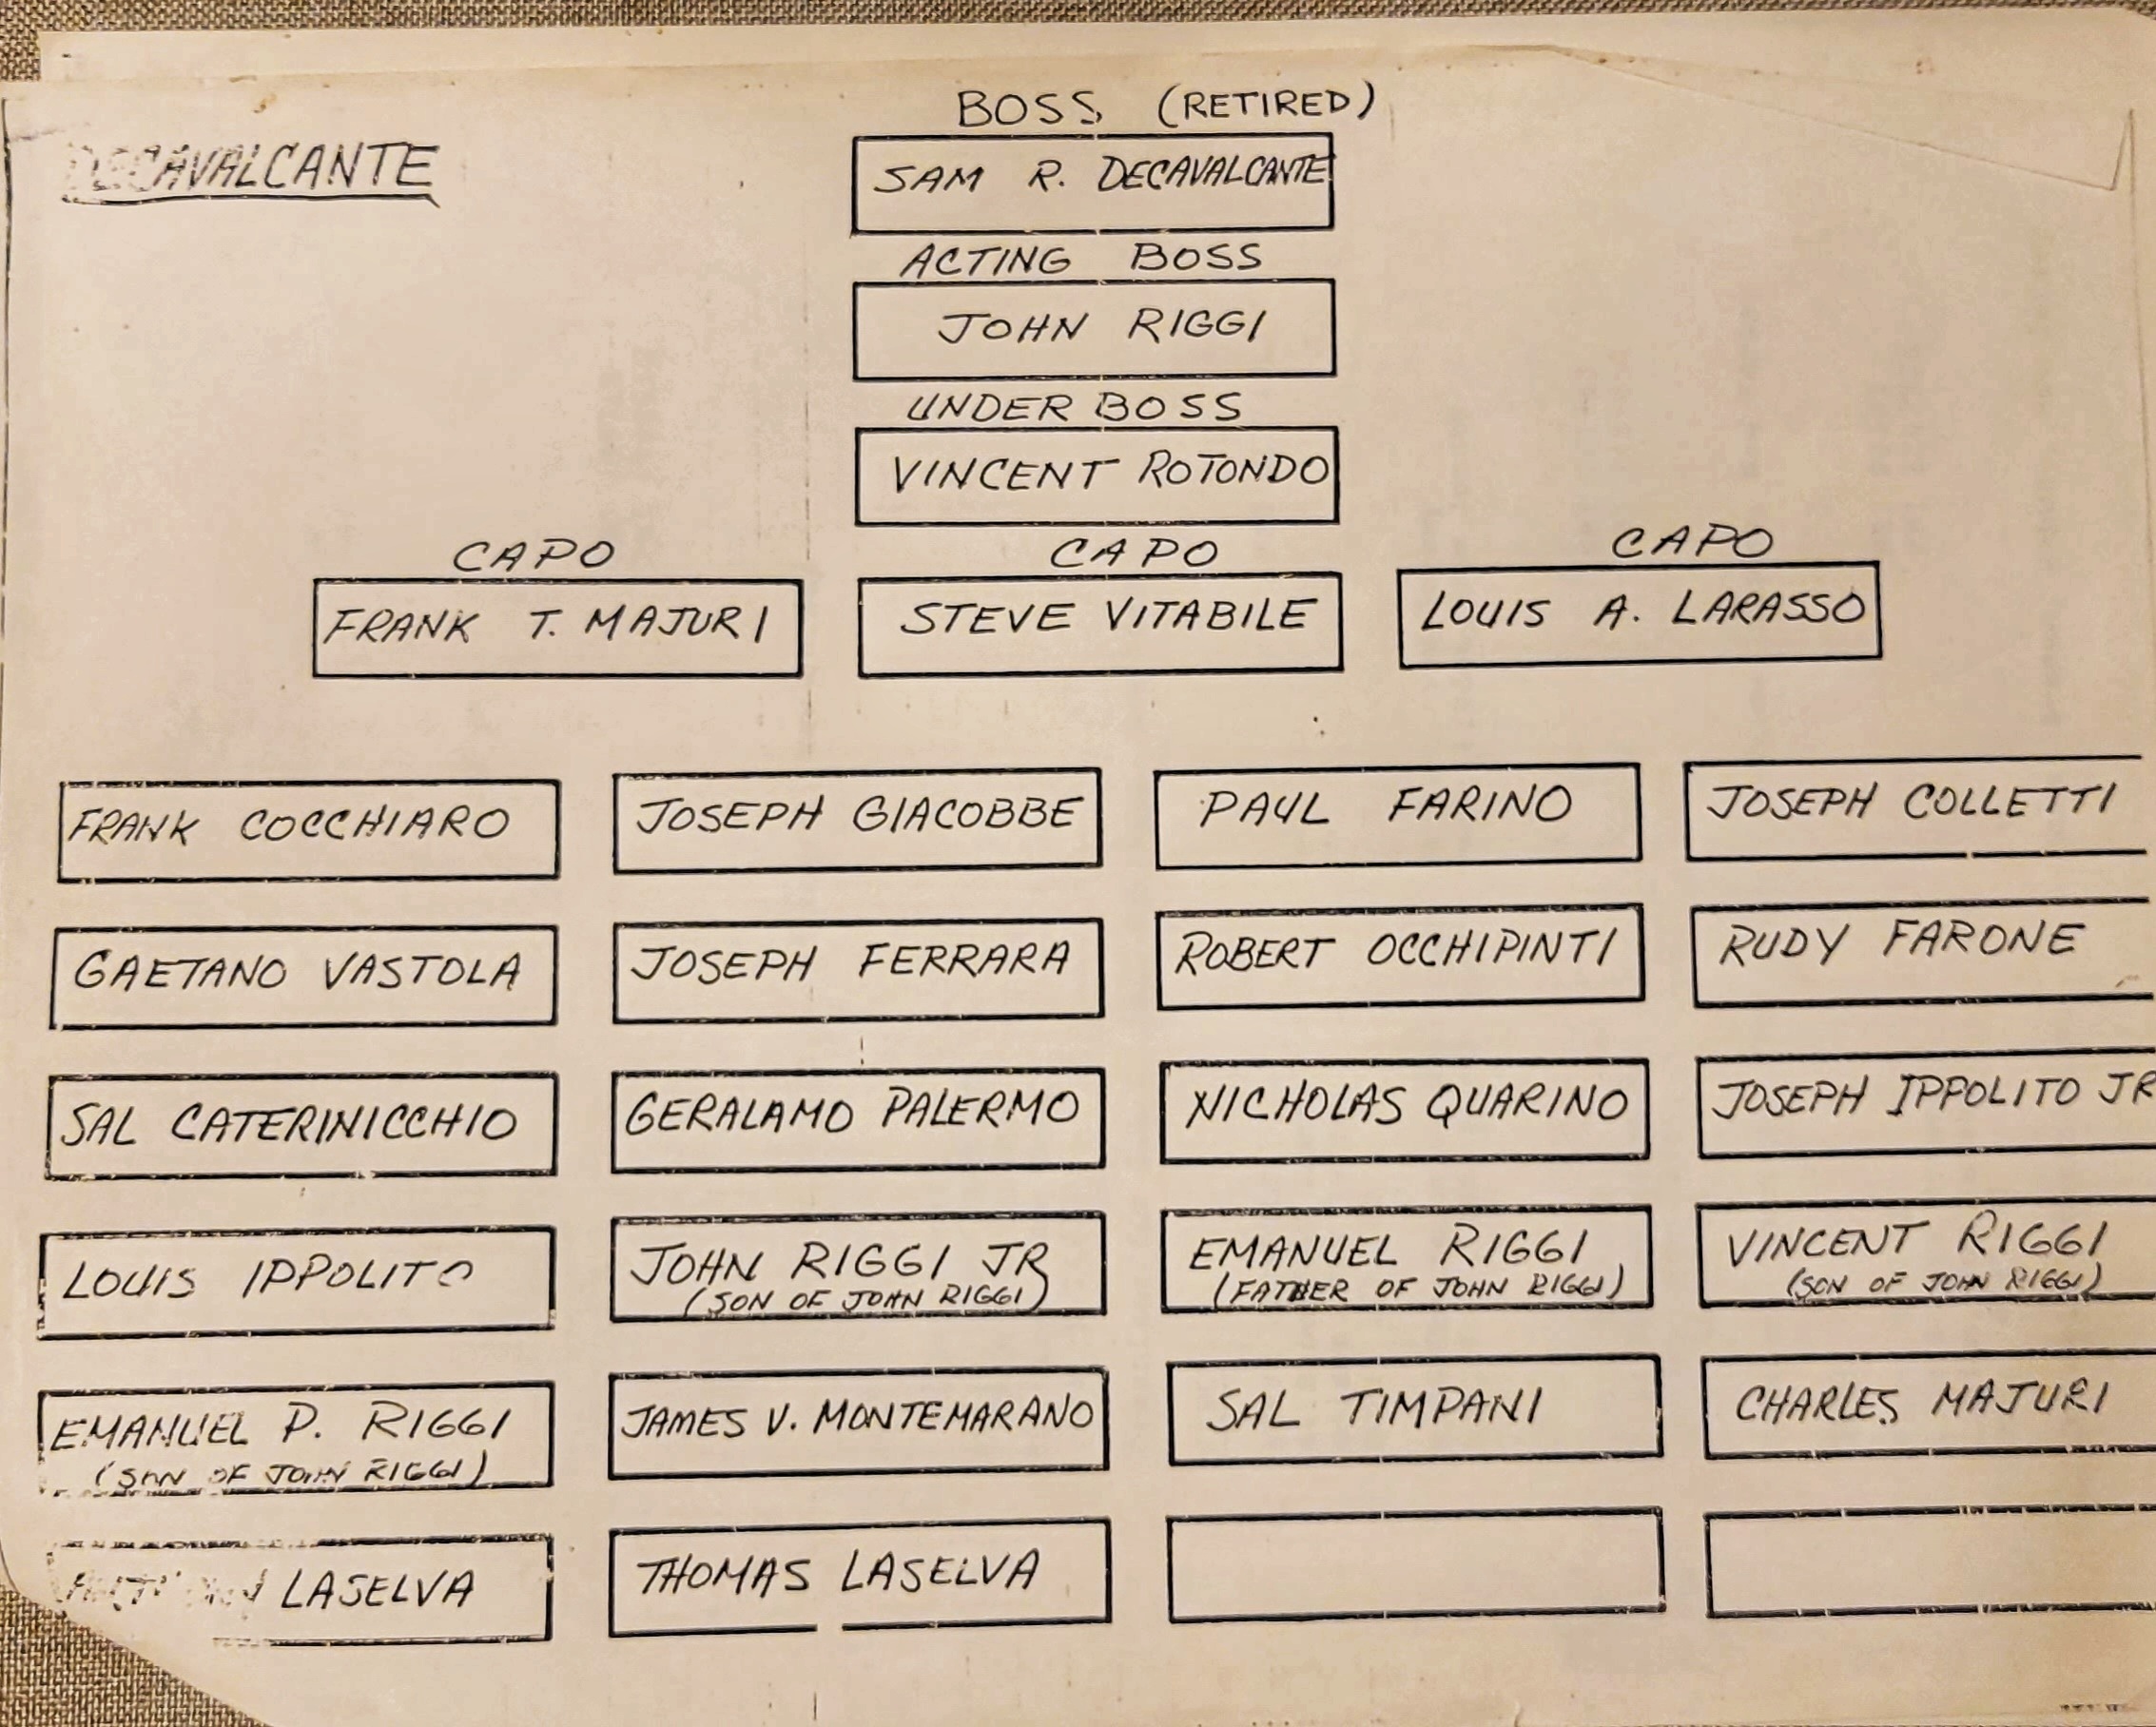 BOSS (RETIRED)
DECAVALCANTE
SAM R. DECAVALCANTE
ACTING BOSS
JOHN RIGGI
UNDER BOSS
VINCENT ROTONDO
CAPO CAPO CAPO
FRANK T. MAJURI STEVE VITABILE LOUIS A. LARASSO
FRANK COCCHIARO JOSEPH GIACOBBE PAUL FARINO JOSEPH COLLETTI
GAETANO VASTOLA JOSEPH FERRARA ROBERT OCCHIPINTI RUDY FARONE
SAL CATERINICCHIO GERALAMO PALERMO NICHOLAS QUARINO JOSEPH IPPOLITO JR
LOUIS IPPOLITO JOHN RIGGI JR EMANUEL RIGGI VINCENT RIGGI
(SON OF JOHN RIGGI) (FATHER OF JOHN RIGGI) (SON OF JOHN RIGGI)
EMANUEL P. RIGGI JAMES V. MONTEMARANO SAL TIMPANI CHARLES MAJURI
(SON OF JOHN RIGGI)
LASELVA THOMAS LASELVA